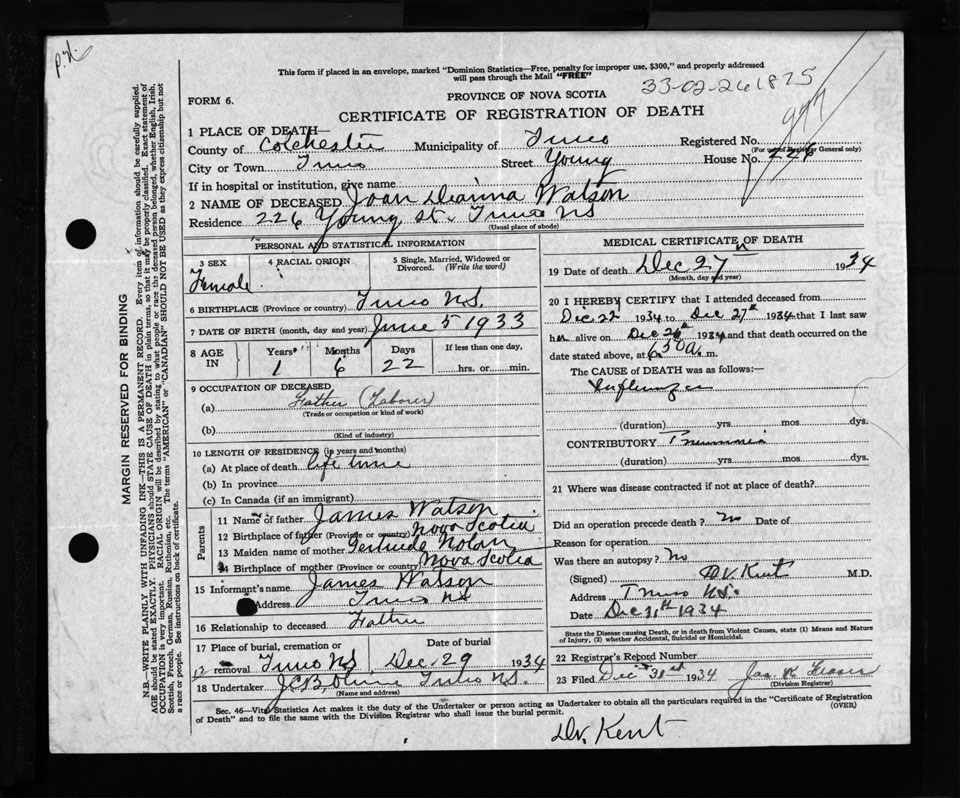 P.X.
This form if placed in an envelope, marked "Dominion Statistics—Free, penalty for improper use, $300," and properly addressed
will pass through the Mail "FREE"
33-02-261825
PROVINCE OF NOVA SCOTIA
FORM 6.
CERTIFICATE OF REGISTRATION OF DEATH
997
1 PLACE OF DEATH—
County of Colchester Municipality of Truro Registered No.
(For use of Registrar General only)
City or Town Truro Street Young House No. 226
If in hospital or institution, give name
2 NAME OF DECEASED Joan Dianna Watson
Residence 226 Young St. Truro NS
(Usual place of abode)
PERSONAL AND STATISTICAL INFORMATION
3 SEX 4 RACIAL ORIGIN 5 Single, Married, Widowed or Divorced. (Write the word)
Female
6 BIRTHPLACE (Province or country) Truro N.S.
7 DATE OF BIRTH (month, day and year) June 5 1933
8 AGE IN Years Months Days If less than one day,
1 6 22 hrs. or min.
9 OCCUPATION OF DECEASED
(a) Father (Laborer)
(Trade or occupation or kind of work)
(b)
(Kind of industry)
10 LENGTH OF RESIDENCE (in years and months)
(a) At place of death life time
(b) In province
(c) In Canada (if an immigrant)
Parents
11 Name of father James Watson
12 Birthplace of father (Province or country) Nova Scotia
13 Maiden name of mother Gertrude Nolan
14 Birthplace of mother (Province or country) Nova Scotia
15 Informant's name James Watson
Address Truro NS
16 Relationship to deceased Father
17 Place of burial, cremation or removal Date of burial
Truro NS Dec 29 1934
18 Undertaker Truro N.S.
(Name and address)
MEDICAL CERTIFICATE OF DEATH
19 Date of death Dec 27 1934
(Month, day and year)
20 I HEREBY CERTIFY that I attended deceased from
Dec 22 1934 to Dec 27th 1934 that I last saw
her alive on Dec 26th 1934 and that death occurred on the
date stated above, at 6.30 a. m.
The CAUSE of DEATH was as follows:—
Influenza
(duration) yrs. mos. dys.
CONTRIBUTORY Pneumonia
(duration) yrs. mos. dys.
21 Where was disease contracted if not at place of death?
Did an operation precede death? No Date of
Reason for operation
Was there an autopsy? No
(Signed) D.V. Kent M.D.
Address Truro N.S.
Date Dec 31st 1934
State the Disease causing Death, or in death from Violent Causes, state (1) Means and Nature
of Injury, (2) whether Accidental, Suicidal or Homicidal.
22 Registrar's Record Number
23 Filed Dec 31st 1934 Jas W
(Division Registrar)
Sec. 46—Vital Statistics Act makes it the duty of the Undertaker or person acting as Undertaker to obtain all the particulars required in the "Certificate of Registration
of Death" and to file the same with the Division Registrar who shall issue the burial permit.
(OVER)
Dr. Kent
MARGIN RESERVED FOR BINDING
N.B.—WRITE PLAINLY WITH UNFADING INK—THIS IS A PERMANENT RECORD. Every item of information should be carefully supplied.
AGE should be stated EXACTLY. PHYSICIANS should STATE CAUSE OF DEATH in plain terms, so that it may be properly classified. Exact statement of
OCCUPATION is very important. RACIAL ORIGIN will be described by stating to what people or race the deceased person belonged, whether English, Irish,
Scottish, French, German, Russian, Ruthenian, etc. The terms "AMERICAN" or "CANADIAN" SHOULD NOT BE USED as they express citizenship but not
a race or people. See instructions on back of certificate.